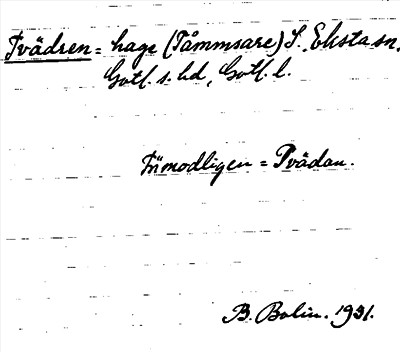 Tvädren = hage (Tåmmsare) S. Eksta sn,
Gotl. s. hd, Gotl. l.
Förmodligen = Tvädan.
B. Bolin. 1931.